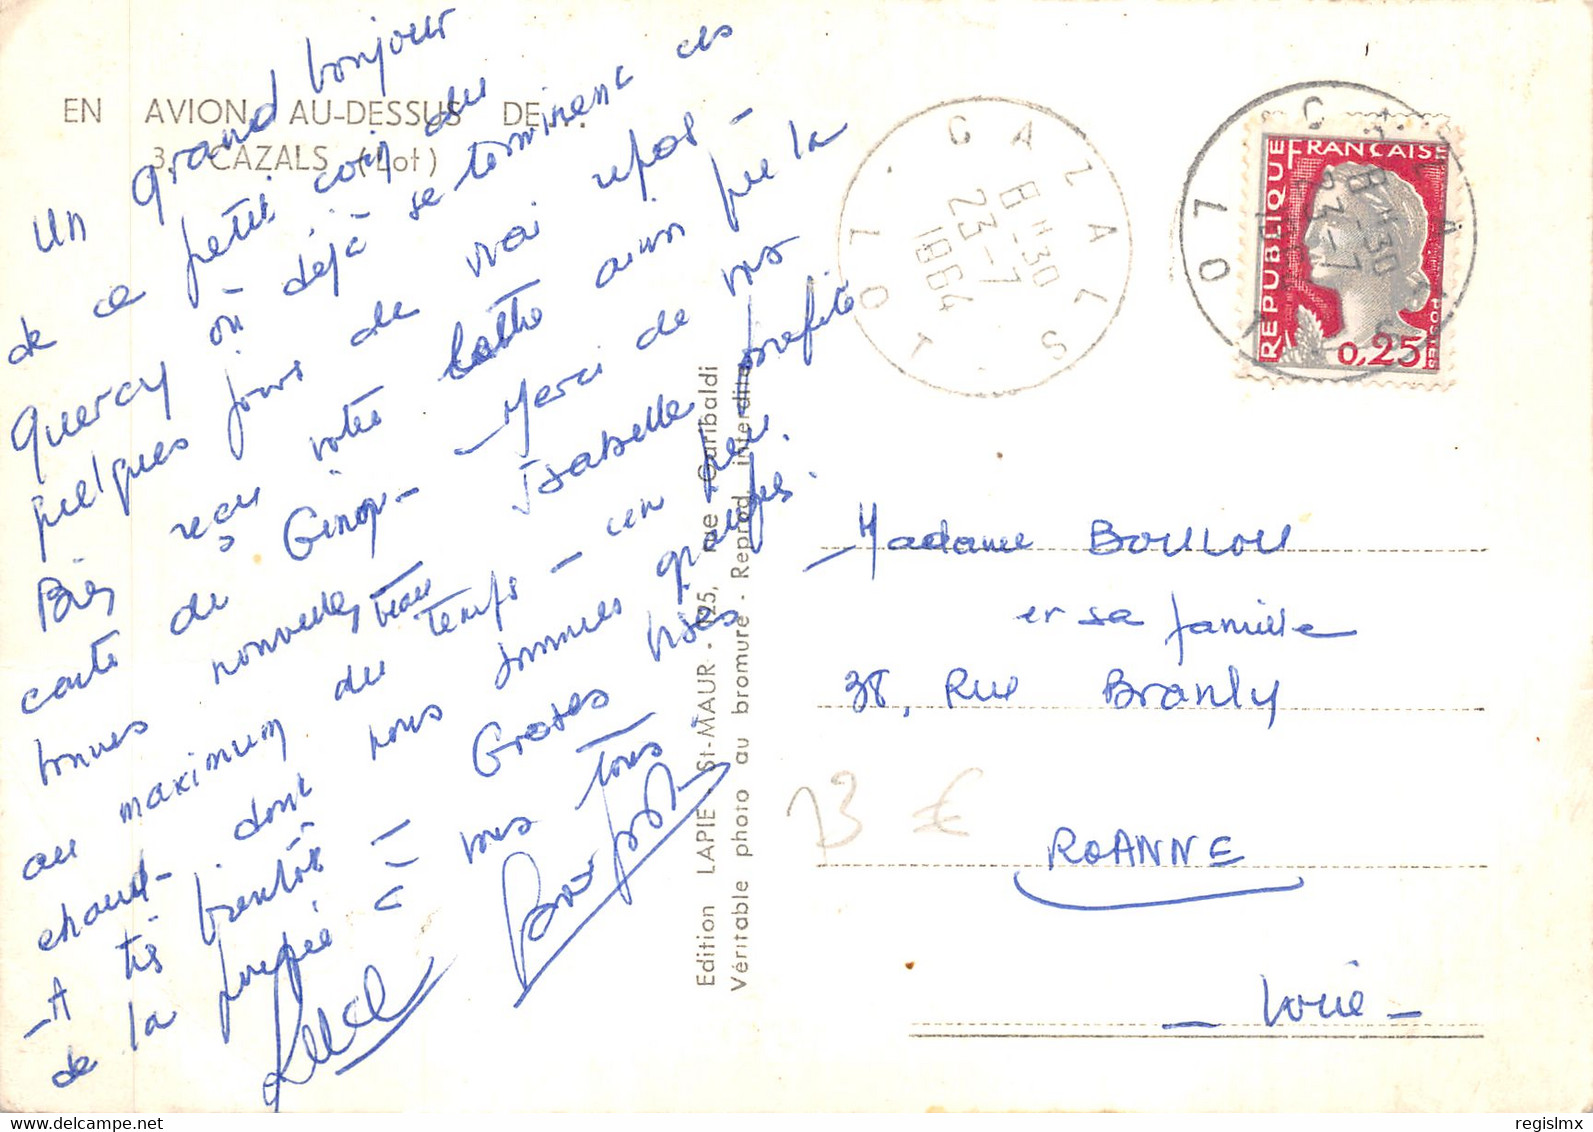 EN AVION AU-DESSUS DE...
3. CAZALS (Lot)
Un grand bonjour
de ce petit coin du
Quercy où déjà se terminent ces
quelques jours de vrai repos -
Bien reçu votre lettre ainsi que la
carte de - Merci de vos
bonnes nouvelles Isabelle profite
au maximum du beau temps - un peu
chaud - dont nous sommes
- A très bientôt - Grosses bises
de la à vous tous
CAZALS
LOT
8H30
23-7
1964
CAZALS
LOT
8H30
23-7
REPUBLIQUE FRANÇAISE
POSTES
0,25
Edition LAPIE St-MAUR - 125, rue Garibaldi
Véritable photo au bromure - Reprod. interdite
- Madame BOULLOU
et sa famille
38, Rue Branly
ROANNE
- Loire -
23 €
regislmx